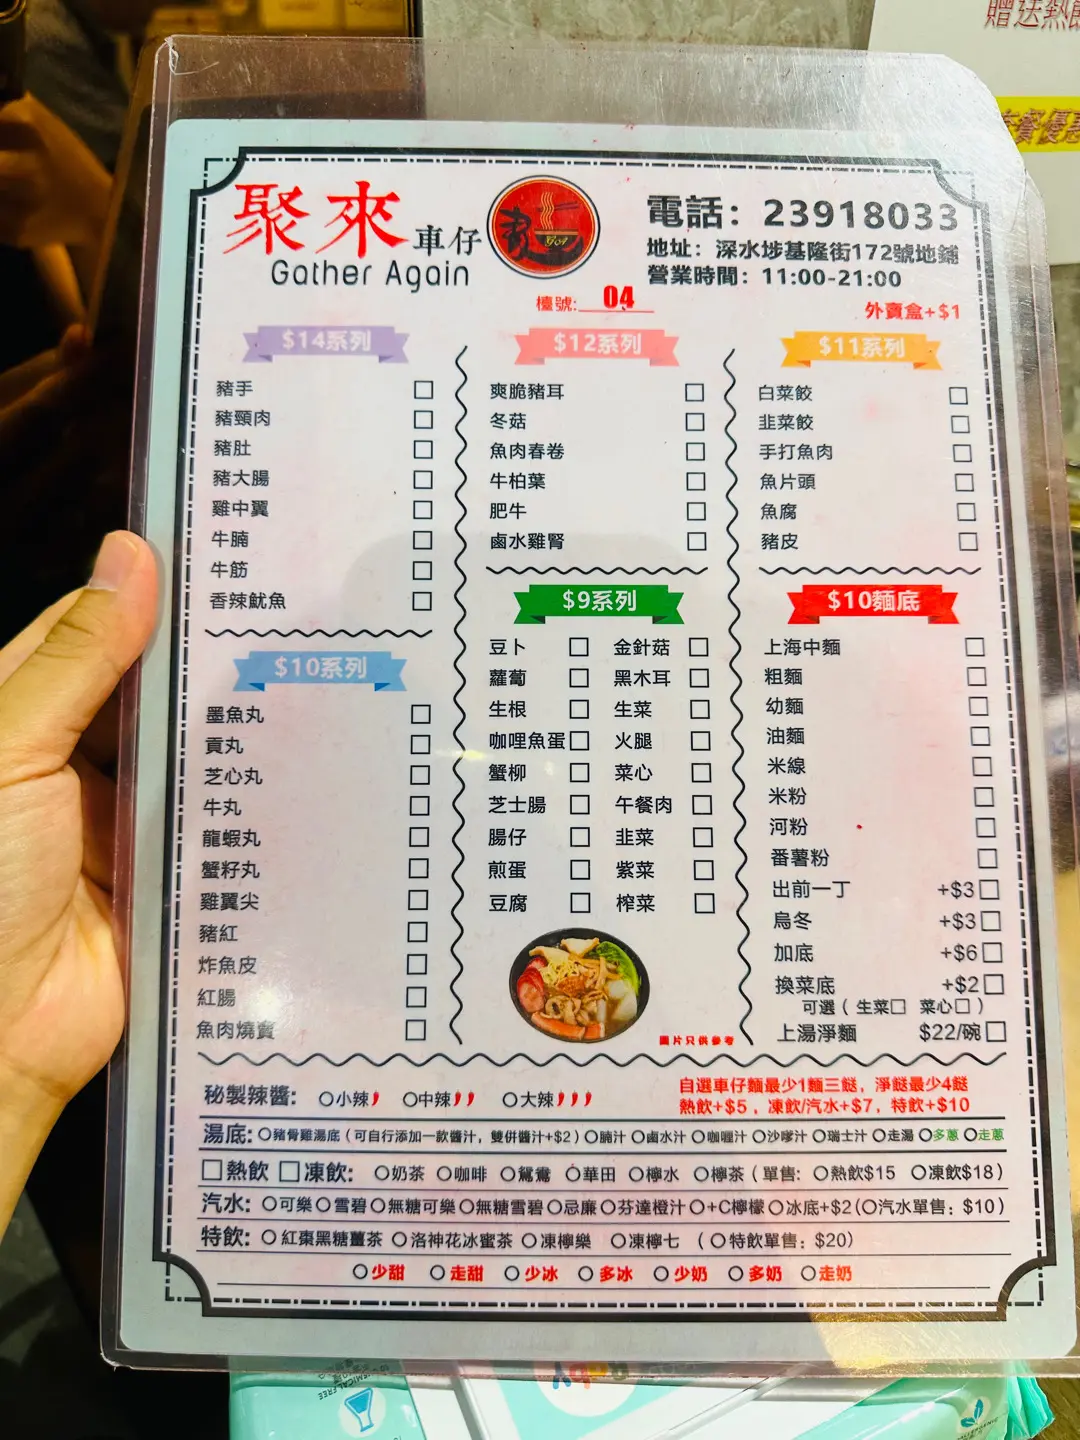 贈送熱
套餐優惠
聚來車仔麵
Gather Again
電話：23918033
地址：深水埗基隆街172號地鋪
營業時間：11:00-21:00
檯號: 04
外賣盒+$1
$14系列
豬手
豬頸肉
豬肚
豬大腸
雞中翼
牛腩
牛筋
香辣魷魚
$10系列
墨魚丸
貢丸
芝心丸
牛丸
龍蝦丸
蟹籽丸
雞翼尖
豬紅
炸魚皮
紅腸
魚肉燒賣
$12系列
爽脆豬耳
冬菇
魚肉春卷
牛柏葉
肥牛
鹵水雞腎
$9系列
豆卜 金針菇
蘿蔔 黑木耳
生根 生菜
咖哩魚蛋 火腿
蟹柳 菜心
芝士腸 午餐肉
腸仔 韭菜
煎蛋 紫菜
豆腐 榨菜
圖片只供參考
$11系列
白菜餃
韭菜餃
手打魚肉
魚片頭
魚腐
豬皮
$10麵底
上海中麵
粗麵
幼麵
油麵
米線
米粉
河粉
番薯粉
出前一丁 +$3
烏冬 +$3
加底 +$6
換菜底 +$2
可選（生菜 菜心）
上湯淨麵 $22/碗
秘製辣醬: 小辣 中辣 大辣
自選車仔麵最少1麵三餸，淨餸最少4餸
熱飲+$5，凍飲/汽水+$7，特飲+$10
湯底: 豬骨雞湯底（可自行添加一款醬汁，雙併醬汁+$2） 腩汁 鹵水汁 咖喱汁 沙嗲汁 瑞士汁 走湯 多蔥 走蔥
熱飲 凍飲: 奶茶 咖啡 鴛鴦 華田 檸水 檸茶（單售: 熱飲$15 凍飲$18）
汽水: 可樂 雪碧 無糖可樂 無糖雪碧 忌廉 芬達橙汁 +C檸檬 冰底+$2（汽水單售: $10）
特飲: 紅棗黑糖薑茶 洛神花冰蜜茶 凍檸樂 凍檸七 （特飲單售: $20）
少甜 走甜 少冰 多冰 少奶 多奶 走奶